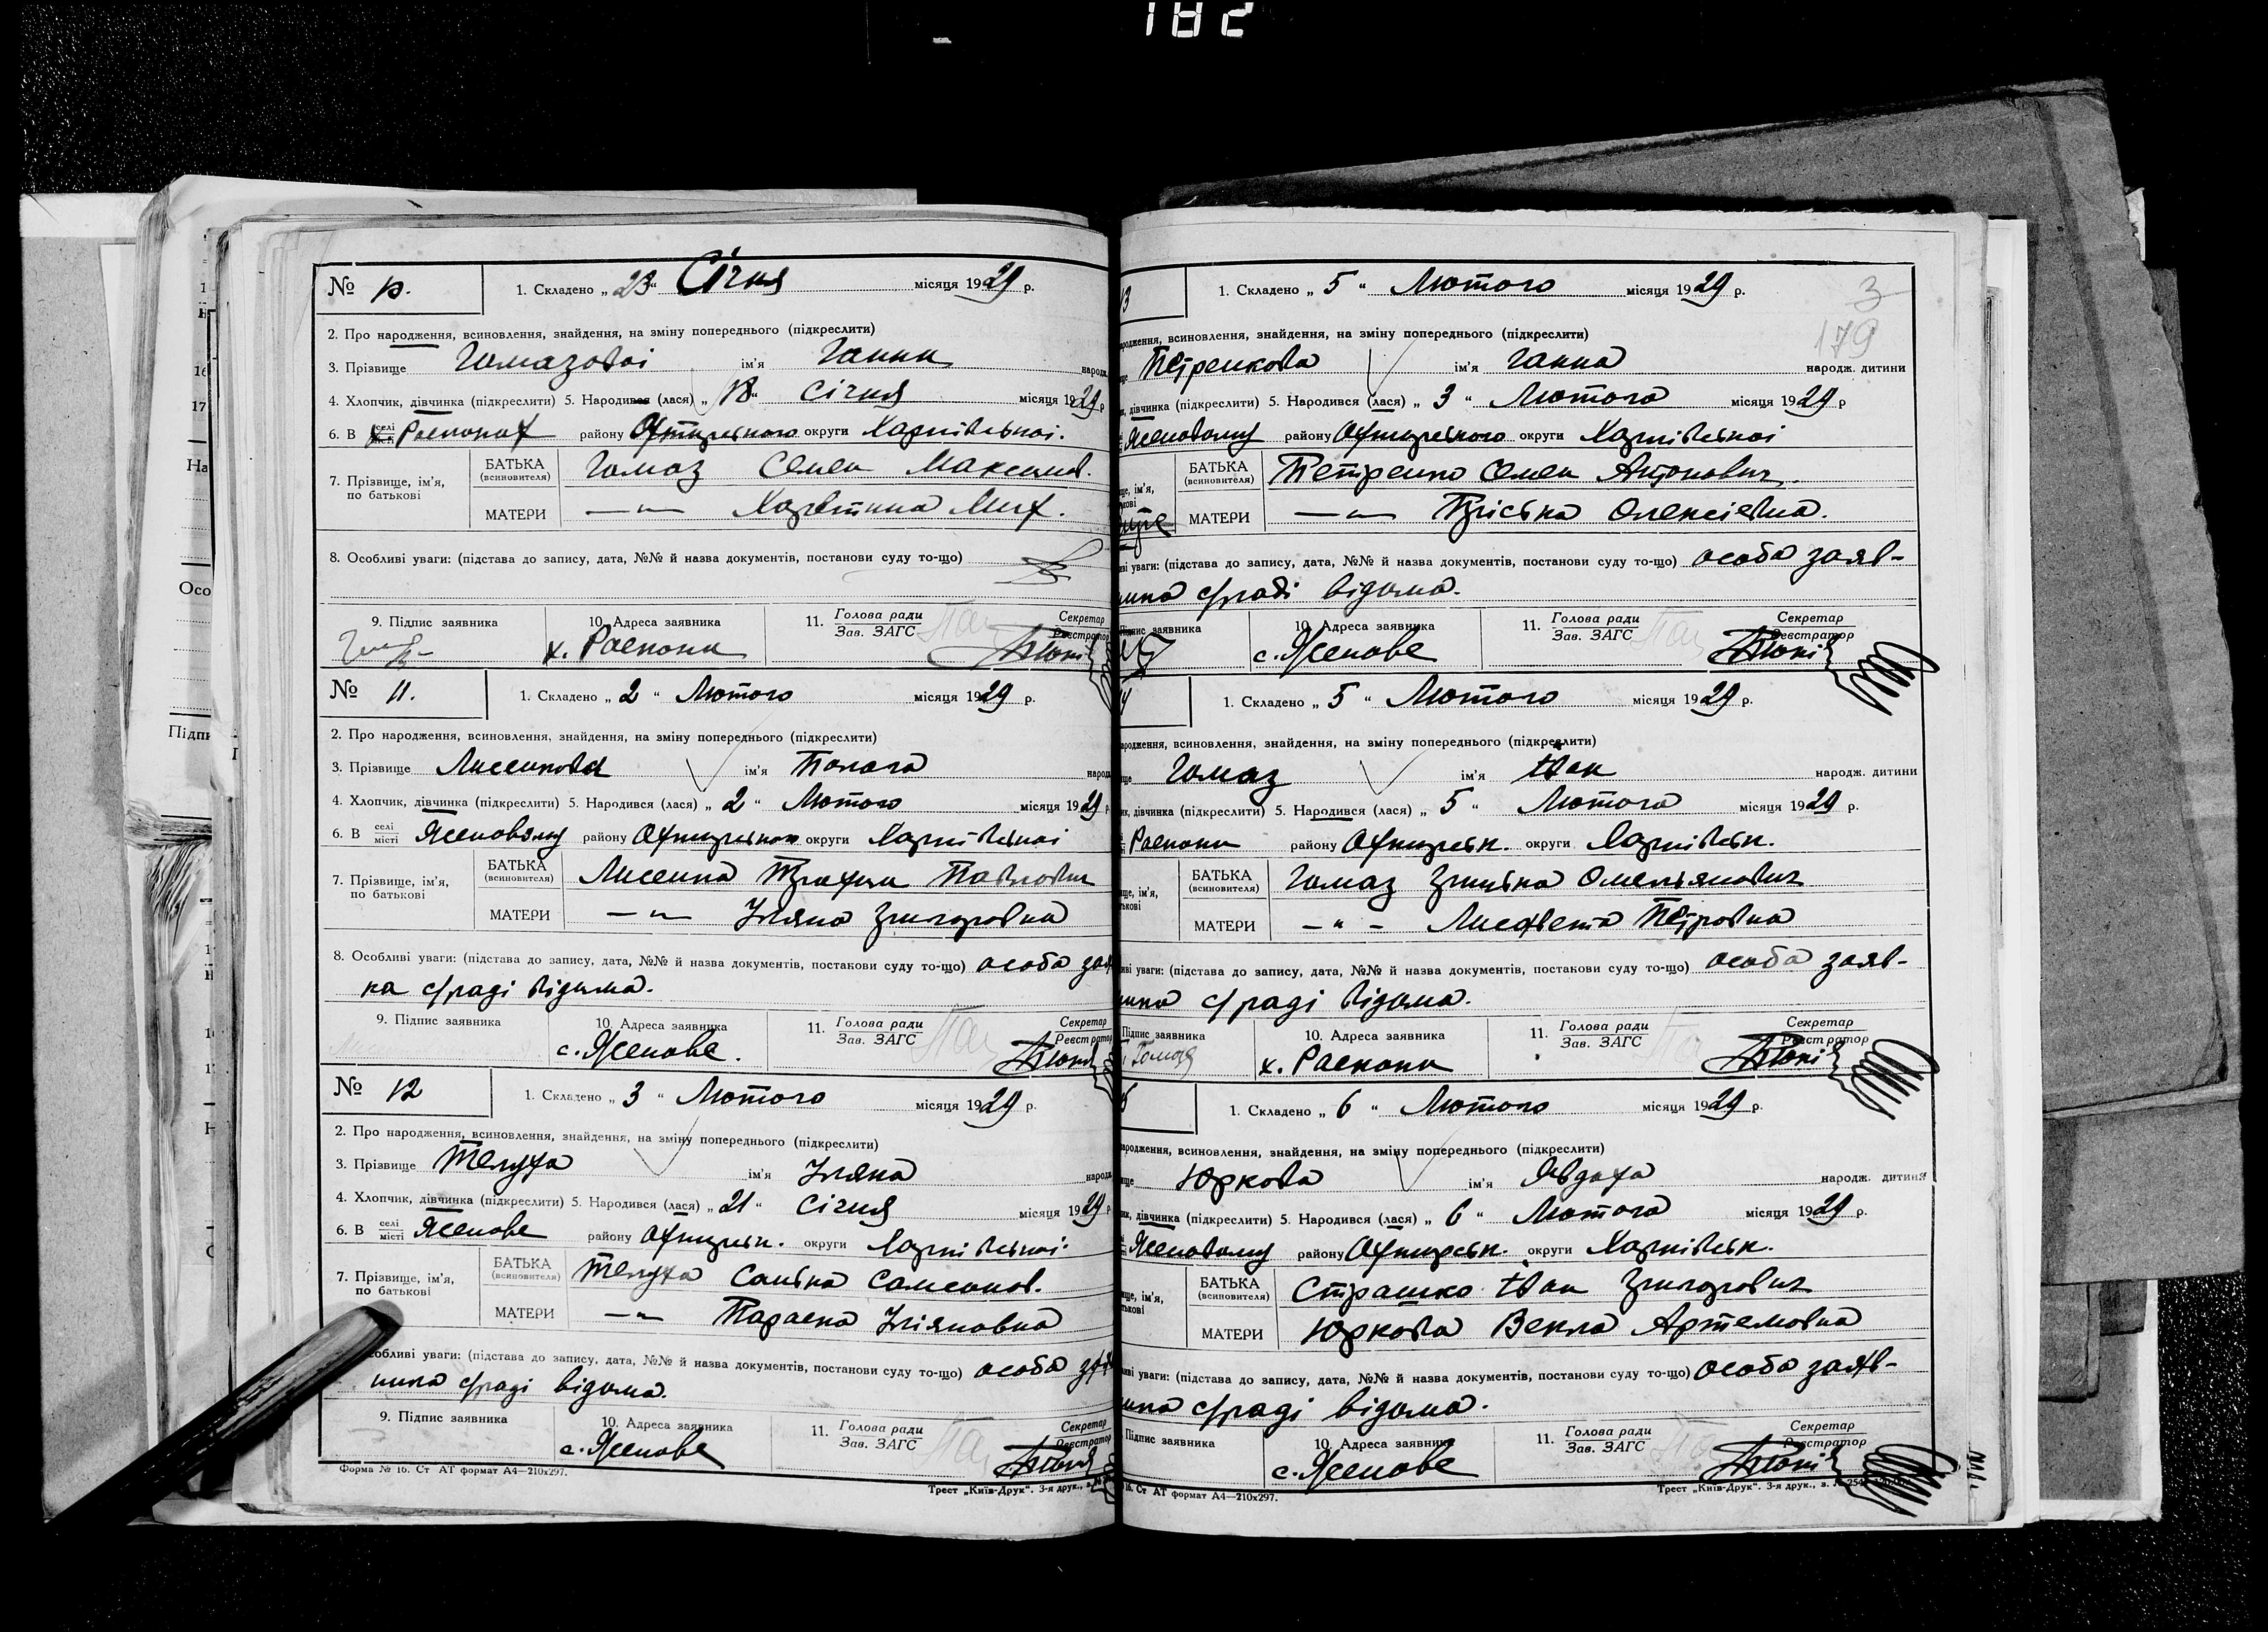 182
№ 10. 1. Складено „ 23 “ Січня місяця 1929 р.
2. Про народження, всиновлення, знайдення, на зміну попереднього (підкреслити)
3. Прізвище Гамазової ім'я Ганни народж.
4. Хлопчик, дівчинка (підкреслити) 5. Народився (лася) „ 18 “ Січня місяця 1929 р
6. В селі місті х. Распопах району Охтирського округи Харківської.
7. Прізвище, ім'я, по батькові
БАТЬКА (всиновителя) Гамаз Семен Максимов.
МАТЕРИ —"— Харитина Мих.
8. Особливі уваги: (підстава до запису, дата, №№ й назва документів, постанови суду то-що)
9. Підпис заявника 10. Адреса заявника 11. Голова ради Зав. ЗАГС Секретар Реєстратор
х. Распопи
№ 11. 1. Складено „ 2 “ Лютого місяця 1929 р.
2. Про народження, всиновлення, знайдення, на зміну попереднього (підкреслити)
3. Прізвище ім'я народж.
4. Хлопчик, дівчинка (підкреслити) 5. Народився (лася) „ 2 “ Лютого місяця 1929 р.
6. В селі місті Ясеновому району Охтирського округи Харківської
7. Прізвище, ім'я, по батькові
БАТЬКА (всиновителя) Павлович
МАТЕРИ —"— Уляна Григоровна
8. Особливі уваги: (підстава до запису, дата, №№ й назва документів, постанови суду то-що) особа заяв
ка с/раді відома.
9. Підпис заявника 10. Адреса заявника 11. Голова ради Зав. ЗАГС Секретар Реєстратор
с. Ясенове.
№ 12 1. Складено „ 3 “ Лютого місяця 1929 р.
2. Про народження, всиновлення, знайдення, на зміну попереднього (підкреслити)
3. Прізвище Телуха ім'я Уляна народж.
4. Хлопчик, дівчинка (підкреслити) 5. Народився (лася) „ 21 “ Січня місяця 1929 р
6. В селі місті Ясенове району Охтирськ. округи Харківської.
7. Прізвище, ім'я, по батькові
БАТЬКА (всиновителя) Телуха Самсонов.
МАТЕРИ —"— Параска Уліяновна
Особливі уваги: (підстава до запису, дата, №№ й назва документів, постанови суду то-що) особа заяв
ника с/раді відома.
9. Підпис заявника 10. Адреса заявника 11. Голова ради Зав. ЗАГС Секретар Реєстратор
с. Ясенове
Форма № 16. Ст АТ формат А4—210х297.
Трест „Київ-Друк“. 3-я друк.,
13 1. Складено „ 5 “ Лютого місяця 1929 р.
3
179
народження, всиновлення, знайдення, на зміну попереднього (підкреслити)
Петренкова ім'я Ганна народж. дитини
дівчинка (підкреслити) 5. Народився (лася) „ 3 “ Лютого місяця 1929 р
Ясеновому району Охтирського округи Харківської
БАТЬКА (всиновителя) Петренко Семен Антонович.
МАТЕРИ —"— Пріська Олексієвна.
уваги: (підстава до запису, дата, №№ й назва документів, постанови суду то-що) особа заяв-
ника с/раді відома.
Підпис заявника 10. Адреса заявника 11. Голова ради Зав. ЗАГС Секретар Реєстратор
с. Ясенове
14 1. Складено „ 5 “ Лютого місяця 1929 р.
народження, всиновлення, знайдення, на зміну попереднього (підкреслити)
Гамаз ім'я Іван народж. дитини
дівчинка (підкреслити) 5. Народився (лася) „ 5 “ Лютого місяця 1929 р.
Распопи району Охтирськ. округи Харківськ.
БАТЬКА (всиновителя) Гамаз Грицько Омелянович
МАТЕРИ —"— Лисавета Петровна
уваги: (підстава до запису, дата, №№ й назва документів, постанови суду то-що) особа заяв-
ника с/раді відома.
Підпис заявника 10. Адреса заявника 11. Голова ради Зав. ЗАГС Секретар Реєстратор
Гамаз х. Распопи
1. Складено „ 6 “ Лютого місяця 1929 р.
народження, всиновлення, знайдення, на зміну попереднього (підкреслити)
Юркова ім'я Явдоха народж. дитини
дівчинка (підкреслити) 5. Народився (лася) „ 6 “ Лютого місяця 1929 р.
Ясеновому району Охтирськ. округи Харківськ.
БАТЬКА (всиновителя) Страшко Іван Григорович
МАТЕРИ Юркова Векла Артемовна
уваги: (підстава до запису, дата, №№ й назва документів, постанови суду то-що) особа заяв-
ника с/раді відома.
Підпис заявника 10. Адреса заявника 11. Голова ради Зав. ЗАГС Секретар Реєстратор
с. Ясенове
16. Ст АТ формат А4—210х297.
Трест „Київ-Друк“. 3-я друк., з.